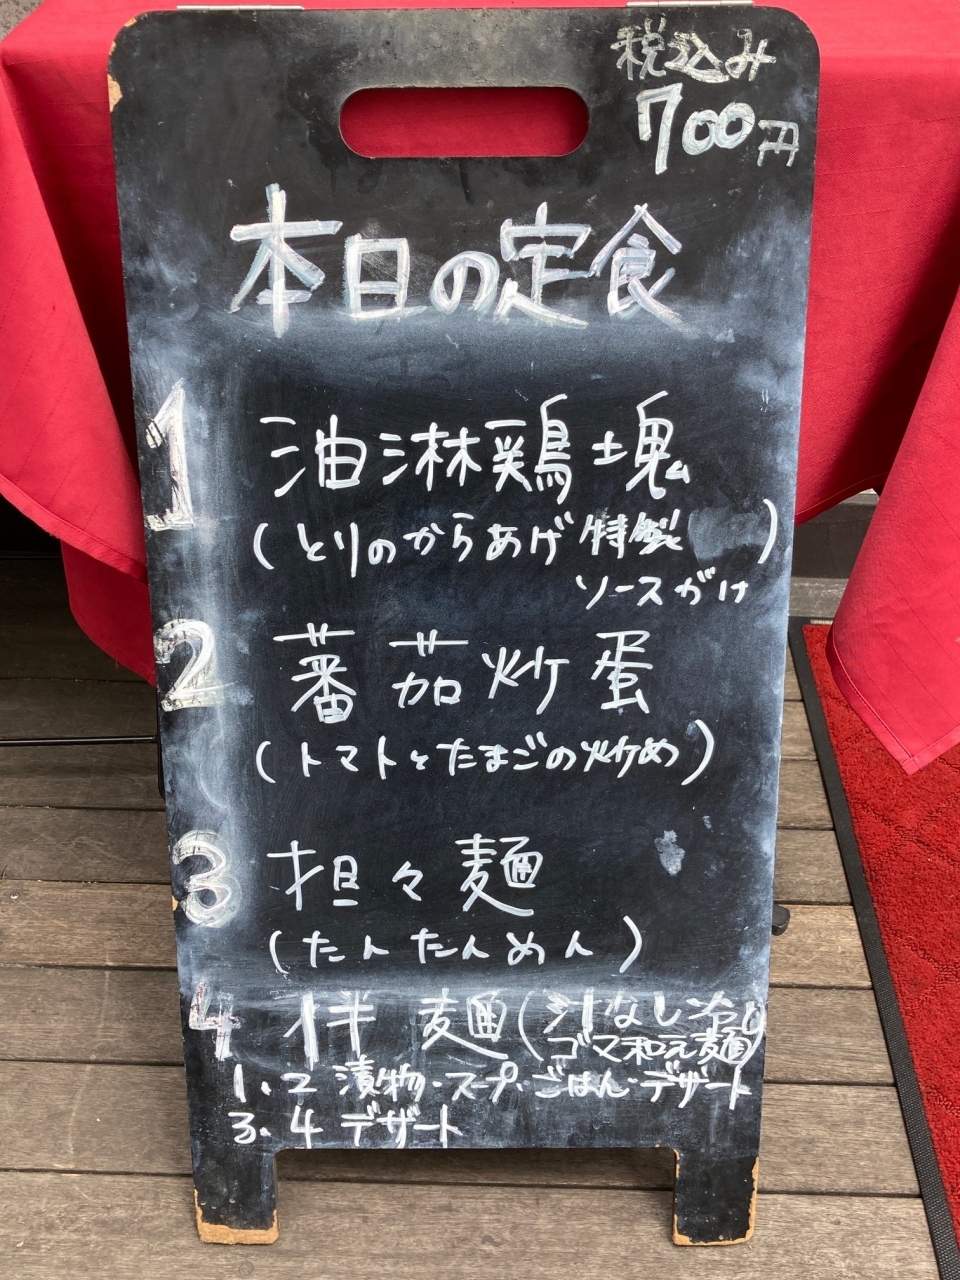 税込み
700円
本日の定食
1 油淋鶏塊
(とりのからあげ特製)
ソースがけ
2 蕃茄炒蛋
(トマトとたまごの炒め)
3 担々麺
(たんたんめん)
4 伴麺(汁なし冷し
ゴマ和え麺)
1、2 漬物・スープ・ごはん・デザート
3、4 デザート